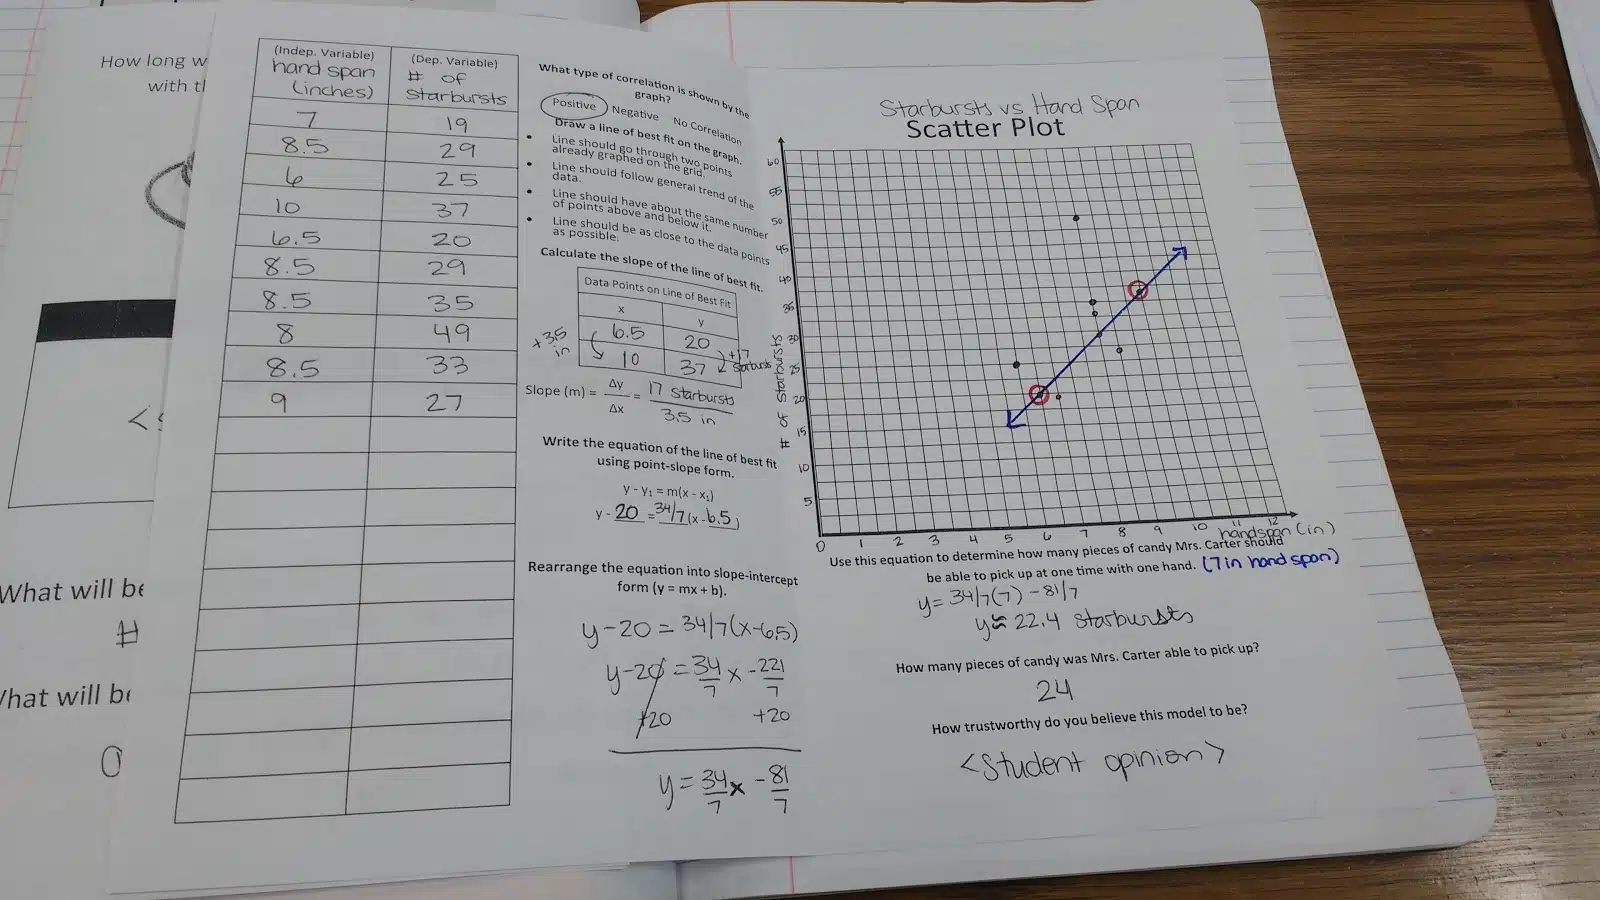 How long w
with th
What will be
#
What will be
0
(Indep. Variable) (Dep. Variable)
hand span # of
(inches) starbursts
7 19
8.5 29
6 25
10 37
6.5 20
8.5 29
8.5 35
8 49
8.5 33
9 27
What type of correlation is shown by the
graph?
Positive Negative No Correlation
Draw a line of best fit on the graph.
• Line should go through two points
already graphed on the grid.
• Line should follow general trend of the
data.
• Line should have about the same number
of points above and below it.
• Line should be as close to the data points
as possible.
Calculate the slope of the line of best fit.
Data Points on Line of Best Fit
x y
6.5 20
10 37
+3.5
in
+17
starbursts
Slope (m) = Δy/Δx = 17 starbursts/3.5 in
Write the equation of the line of best fit
using point-slope form.
y - y₁ = m(x - x₁)
y - 20 = 34/7 (x - 6.5)
Rearrange the equation into slope-intercept
form (y = mx + b).
y-20 = 34/7(x-6.5)
y-20 = 34/7 x - 221/7
+20 +20
y = 34/7 x - 81/7
Starbursts vs Hand Span
Scatter Plot
60
55
50
45
40
35
30
25
20
15
10
5
# of Starbursts
0 1 2 3 4 5 6 7 8 9 10 11 12
handspan (in)
Use this equation to determine how many pieces of candy Mrs. Carter should
be able to pick up at one time with one hand. (7 in hand span)
y = 34/7(7) - 81/7
y ≈ 22.4 starbursts
How many pieces of candy was Mrs. Carter able to pick up?
24
How trustworthy do you believe this model to be?
<Student opinion>